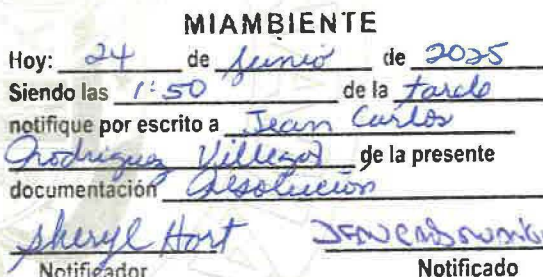 MIAMBIENTE
Hoy: 24 de Junio de 2025
Siendo las 1:50 de la tarde
notifique por escrito a Jean Carlos
Rodriguez Villegas de la presente
documentación Resolución
Sheryl Hort
Notificador Notificado